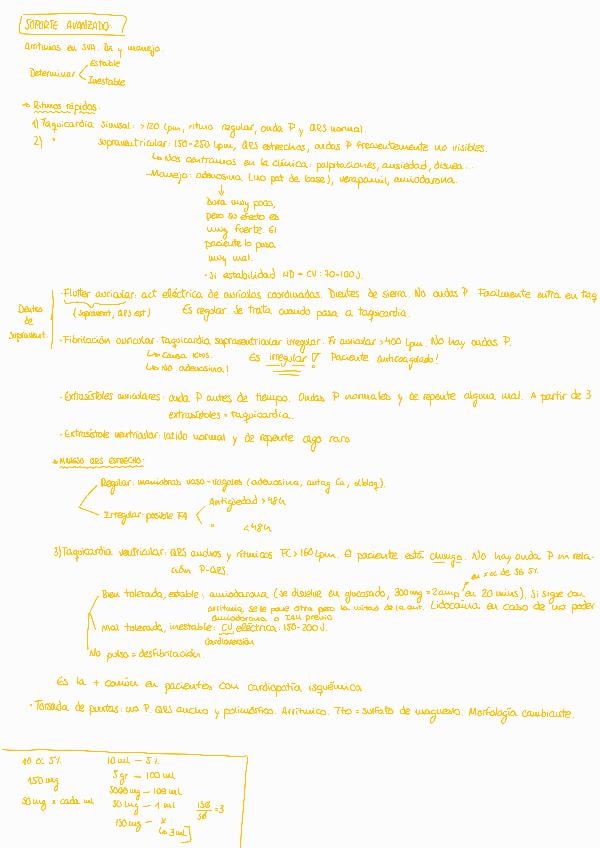 SOPORTE AVANZADO
Arritmias en SVA. Dx y manejo.
Determinar
Estable
Inestable
→ Ritmos rápidos:
1) Taquicardia sinusal: >120 lpm, ritmo regular, onda P y QRS normal.
2) " supraventricular: 150-250 lpm, QRS estrechos, ondas P frecuentemente no visibles.
↳ Nos centramos en la clínica: palpitaciones, ansiedad, disnea...
- Manejo: adenosina (no pat de base), verapamil, amiodarona.
↓
Dura muy poco,
pero su efecto es
muy fuerte. El
paciente lo pasa
muy mal.
· Si estabilidad ND → CV: 70-100 J.
Dentro
de
supravent.
· Flutter auricular: act eléctrica de aurículas coordinadas. Dientes de sierra. No ondas P. Facilmente entra en taq
(supravent, QRS est)
Es regular. Se trata cuando pasa a taquicardia.
· Fibrilación auricular: taquicardia supraventricular irregular. Fr auricular >400 lpm. No hay ondas P.
↳ causa ictus.
Es irregular! Paciente anticoagulado!
↳ NO adenosina!
· Extrasístoles auriculares: onda P antes de tiempo. Ondas P normales y de repente alguna mal. A partir de 3
extrasístoles = taquicardia.
· Extrasístole ventricular: latido normal y de repente algo raro
* MANEJO QRS ESTRECHO:
Regular: maniobras vaso-vagales (adenosina, antag Ca, βbloq).
Irregular: posible FA
Antigüedad >48h
" <48h
3) Taquicardia ventricular: QRS anchos y rítmicos FC >160 lpm. El paciente está chungo. No hay onda P ni rela-
ción P-QRS.
en xx cc de SG 5%
Bien tolerada, estable: amiodarona (se disuelve en glucosado, 300mg = 2amp en 20 mins). Si sigue con
arritmia, se le pone otra pero la mitad de la ant. Lidocaina en caso de no poder
amiodarona o IAM previo
Mal tolerada, inestable: CV eléctrica: 150-200 J.
cardioversión
No pulso = desfibrilación.
Es la + común en pacientes con cardiopatía isquémica
· Torsada de puntas: no P. QRS ancho y polimórfico. Arrítmico. Tto = sulfato de magnesio. Morfología cambiante.
10 cc 5%
150 mg
50mg x cada ml
10 ml — 5%
5 gr — 100 ml
5000 mg — 100 ml
50 mg — 1 ml
150 mg — x
↳ 3 ml
150/50 = 3